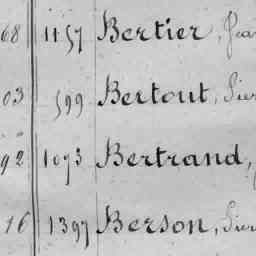 68 1157 Bertier, Jea
03 599 Bertout, Pier
92 1073 Bertrand,
16 1397 Berson, Pier